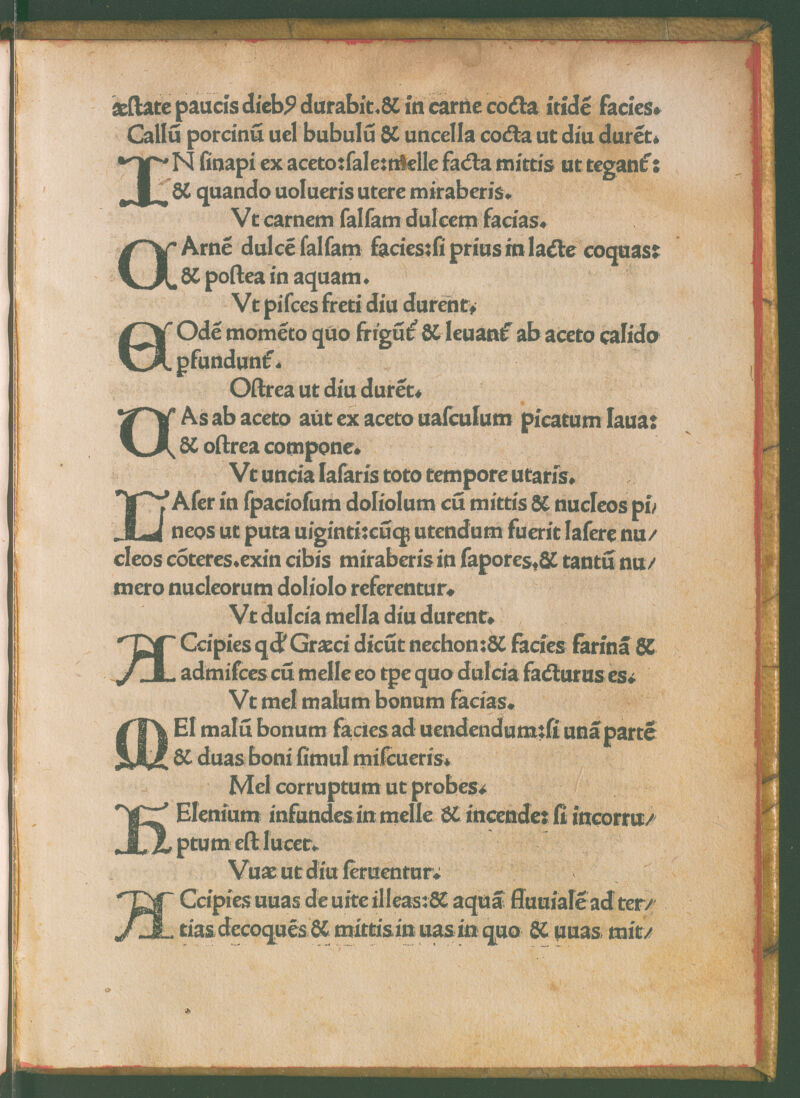 æſtate paucis dieb⁹ durabit.& in carne cocta itidē facies.
Callū porcinū uel bubulū & uncella cocta ut diu durēt.
IN ſinapi ex aceto:ſale:melle facta mittis ut tegant᷑:
& quando uolueris utere miraberis.
Vt carnem ſalſam dulcem facias.
CArnē dulcē ſalſam facies:ſi prius in lacte coquas:
& poſtea in aquam.
Vt piſces freti diu durent.
EOdē momēto quo frigūt᷑ & leuant᷑ ab aceto calido
pfundunt᷑.
Oſtrea ut diu durēt.
VAs ab aceto aut ex aceto uaſculum picatum laua:
& oſtrea compone.
Vt uncia laſaris toto tempore utaris.
LAſer in ſpacioſum doliolum cū mittis & nucleos pi/
neos ut puta uiginti:cūqꝫ utendum fuerit laſere nu/
cleos cōteres.exin cibis miraberis in ſapores.& tantū nu/
mero nucleorum doliolo referentur.
Vt dulcia mella diu durent.
ACcipies qd᷑ Græci dicūt nechon:& facies farinā &
admiſces cū melle eo tpe quo dulcia facturus es.
Vt mel malum bonum facias.
MEl malū bonum facies ad uendendum:ſi unā partē
& duas boni ſimul miſcueris.
Mel corruptum ut probes.
HElenium infundes in melle & incende: ſi incorru/
ptum eſt lucet.
Vuæ ut diu ſeruentur.
ACcipies uuas de uite illeas:& aquā fluuialē ad ter/
tias decoqués & mittis in uas in quo & uuas mit/